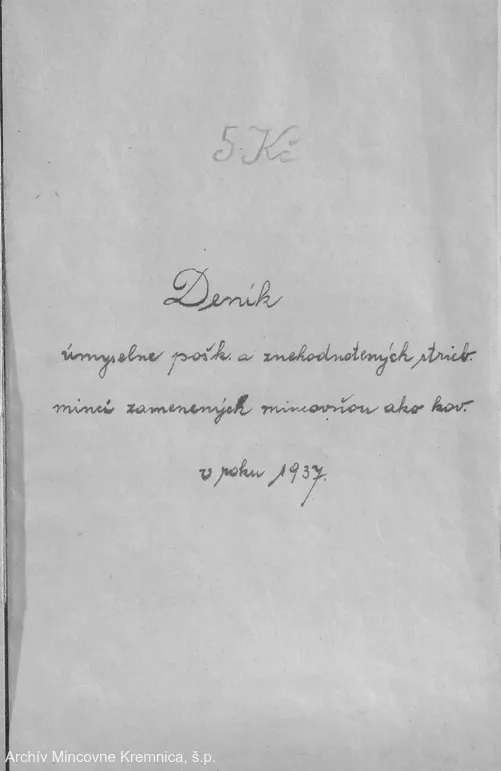 5 Kč
Deník
úmyselne pošk. a znehodnotených strieb.
mincí zamenených mincovňou ako kov.
v roku 1937.
Archív Mincovne Kremnica, š.p.